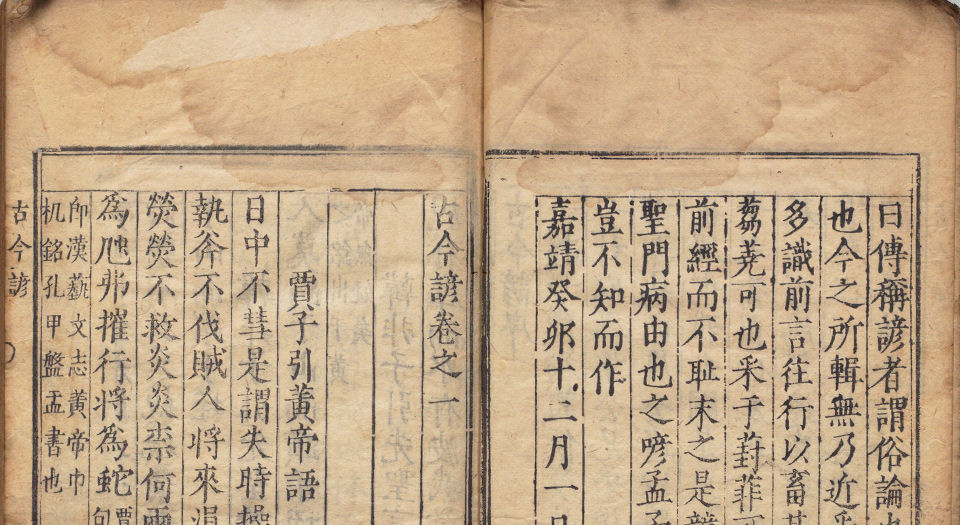 曰傳稱諺者謂俗論
也今之所輯無乃近
多識前言往行以畜
芻蕘可也采于葑菲
前經而不恥末之是
聖門病由也之喭孟
豈不知而作
嘉靖癸卯十二月一日
古今諺卷之一
賈子引黃帝語
日中不彗是謂失時操
執斧不伐賊人將來涓
熒熒不救炎炎柰何兩
為虺弗摧行將為蛇
卽漢藝文志黃帝巾
机銘孔甲盤盂書也
古今諺